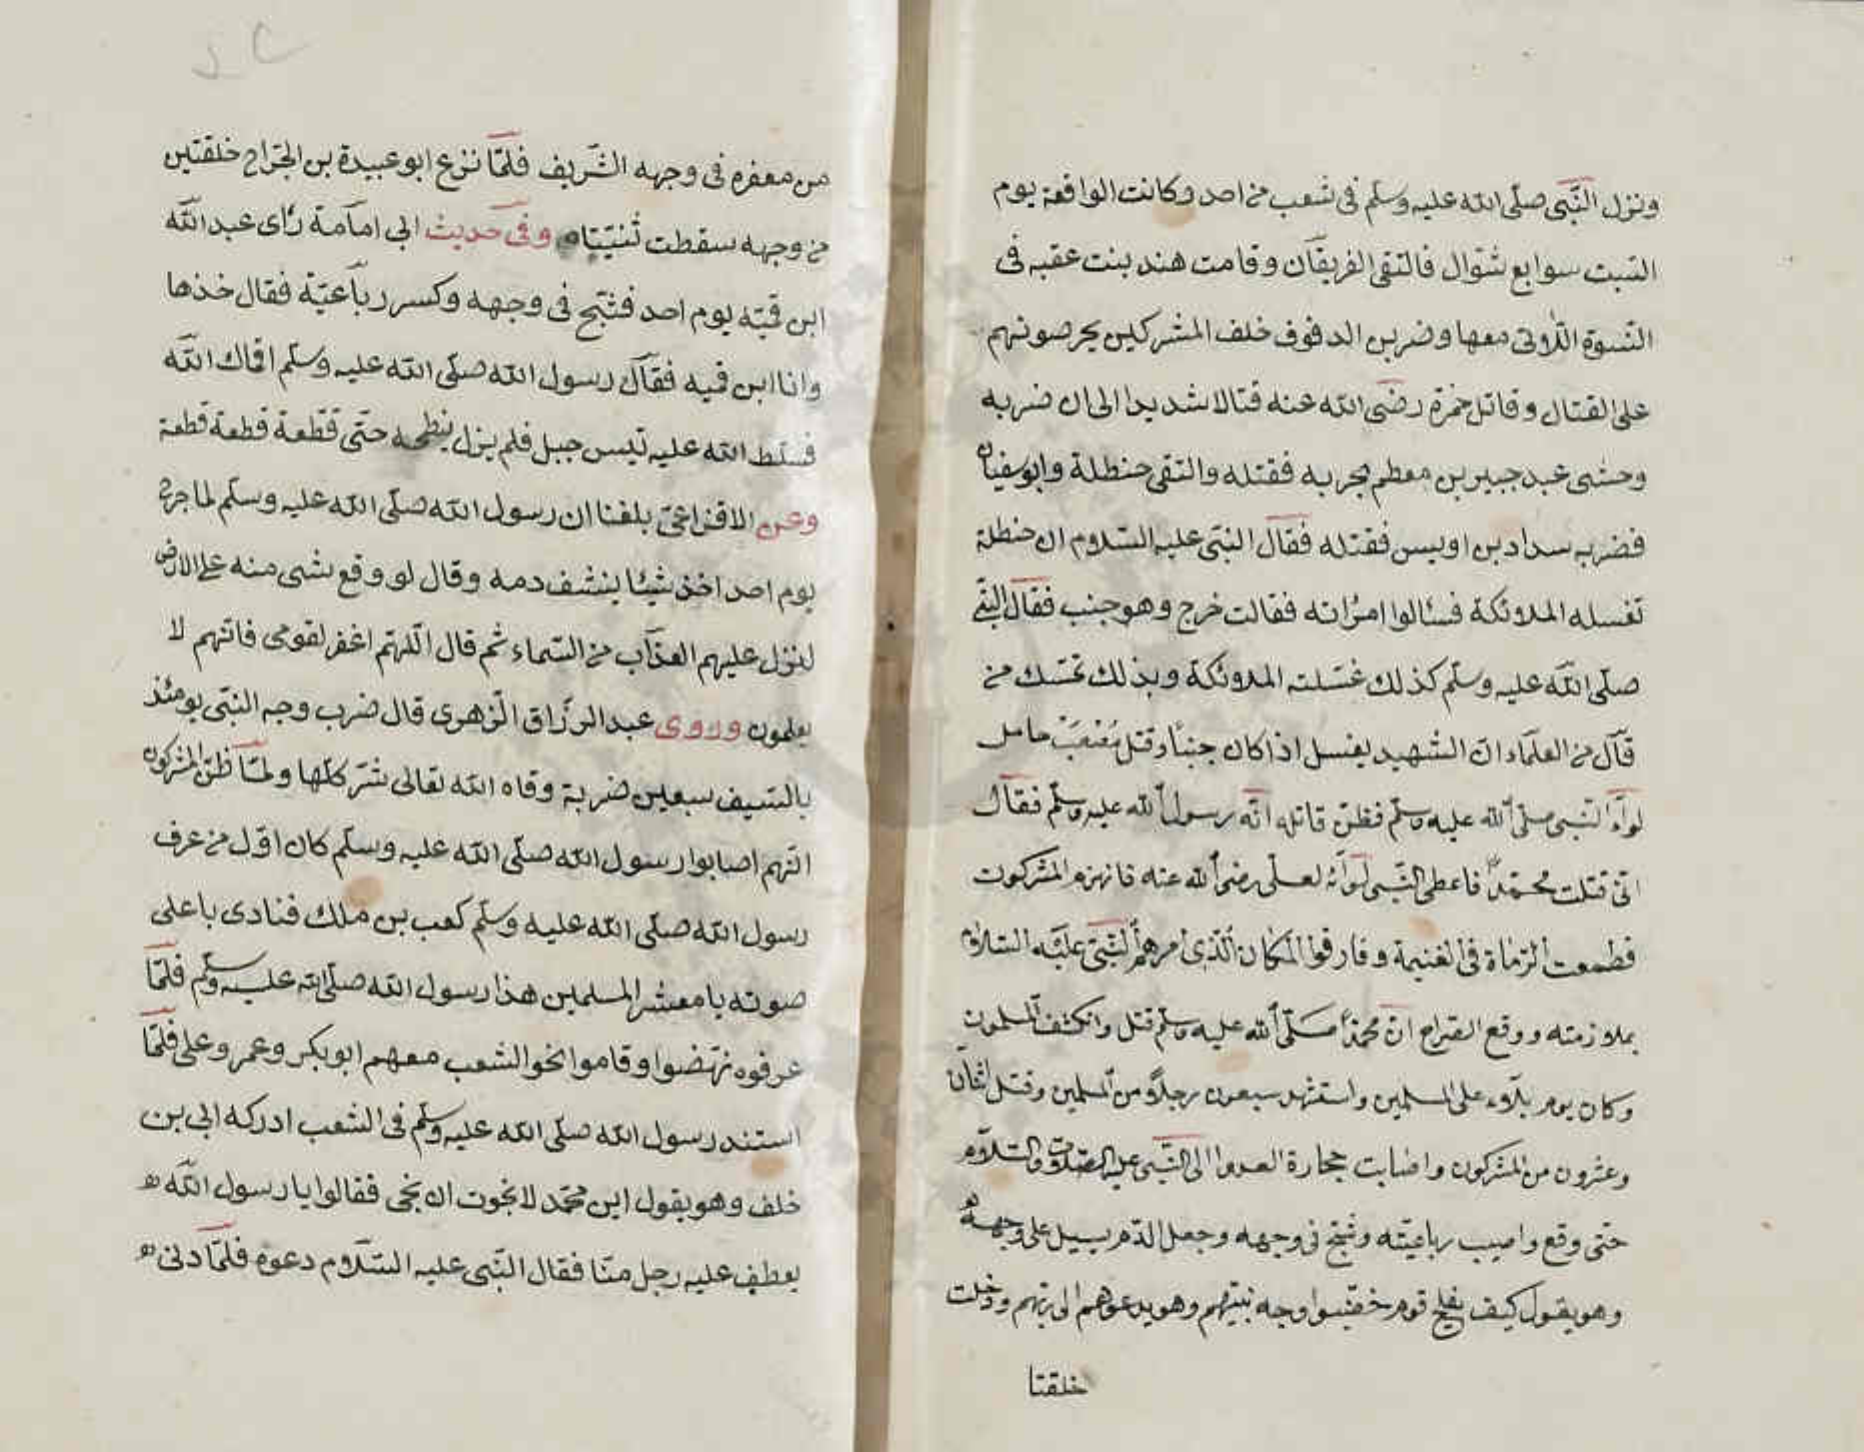 ونزل النّبى صلّى الله عليه وسلّم فى شعب من احد وكانت الواقعة يوم
السّبت سوابع شوّال فالتقى الفريقان وقامت هند بنت عقبه فى
النّسوة اللّاوتى معها وضربن الدفوف خلف المشركين يحرصونهم
على القتال وقاتل حمزة رضى الله عنه قتالا شديدا الى ان ضربه
وحشى عبد جبير بن معطم بحربه فقتله والتقى حنظلة وابو سفيان
فضربه سداد بن اويس فقتله فقال النبّى عليه السّلام ان حنظلة
تغسله الملائكة فسئالوا امرأته فقالت خرج وهو جنب فقال النبّى
صلّى الله عليه وسلّم كذلك غسّلته الملائكة وبذلك تمسّك من
قال من العلماء انّ الشّهيد يغسل اذا كان جنبا وقتل مصعب حامل
لواء النّبى صلّى الله عليه وسلّم فظنّ قاتله انّه رسول الله عليه وسلّم فقال
انّى قتلت محمّدٌ فاعطى النّبى لوائه لعلّى رضى الله عنه فانهزم المشركون
فطمعت الرّماة فى الغنيمة وفارقوا المكان الّذى امرهم النّبىّ عليه السّلام
بملازمته ووقع الصّراح انّ محمّداً صلّى الله عليه وسلّم قتل وانكشف المسلمون
وكان يوم بلاء على المسلمين واستشهد سبعون رجلاً من المسلمين وقتل اثنان
وعشرون من المشركون واصابت حجارة العدوا الى النّبى عليه الصّلاوة والسّلام
حتى وقع واصيب رباعيّته وشجّ فى وجهه وجعل الدّم يسيل على وجهه
وهو يقول كيف يفلح قوم خضّبوا وجه نبيّهم وهو يدعوهم الى ربّهم ودخلت
خلقتا
من مغفره فى وجهه الشّريف فلمّا نزع ابو عبيدة بن الجرّاح خلقتين
من وجهه سقطت ثنيّتاه وفى حديث ابى امامة رأى عبد الله
ابن قميّه يوم احد فشّج فى وجهه وكسر رباعيّة فقال خذها
وانا ابن قميه فقال رسول الله صلّى الله عليه وسلّم اقماك الله
فسلّط الله عليه تيس جبل فلم يزل ينطحه حتّى قطعة قطعة قطعة
وعن الاقزاعىّ بلغنا ان رسول الله صلّى الله عليه وسلّم لما جرح
يوم احد اخذ شيئا ينشف دمه وقال لو وقع شى منه على الارض
لنزل عليهم العذاب من السّماء ثم قال اللّهمّ اغفر لقومى فانّهم لا
يعلمون وروى عبد الرزّاق الزّهرى قال ضرب وجه النبّى يومئذ
بالسّيف سبعين ضربة وقاه الله تعالى شرّ كلّها ولمّا ظنّ المشركون
انّهم اصابوا رسول الله صلّى الله عليه وسلّم كان اوّل من عرف
رسول الله صلّى الله عليه وسلّم كعب بن ملك فنادى باعلى
صوته يا معشر المسلمين هذا رسول الله صلّى الله عليه وسلّم فلمّا
عرفوه نهضوا وقاموا نحو الشعب معهم ابو بكر وعمر وعلى فلمّا
استند رسول الله صلّى الله عليه وسلّم فى الشعب ادركه ابى بن
خلف وهو يقول اين محمّد لا نجوت ان نجى فقالوا يا رسول الله
يعطف عليه رجل منّا فقال النّبى عليه السّلام دعوه فلمّا دنى